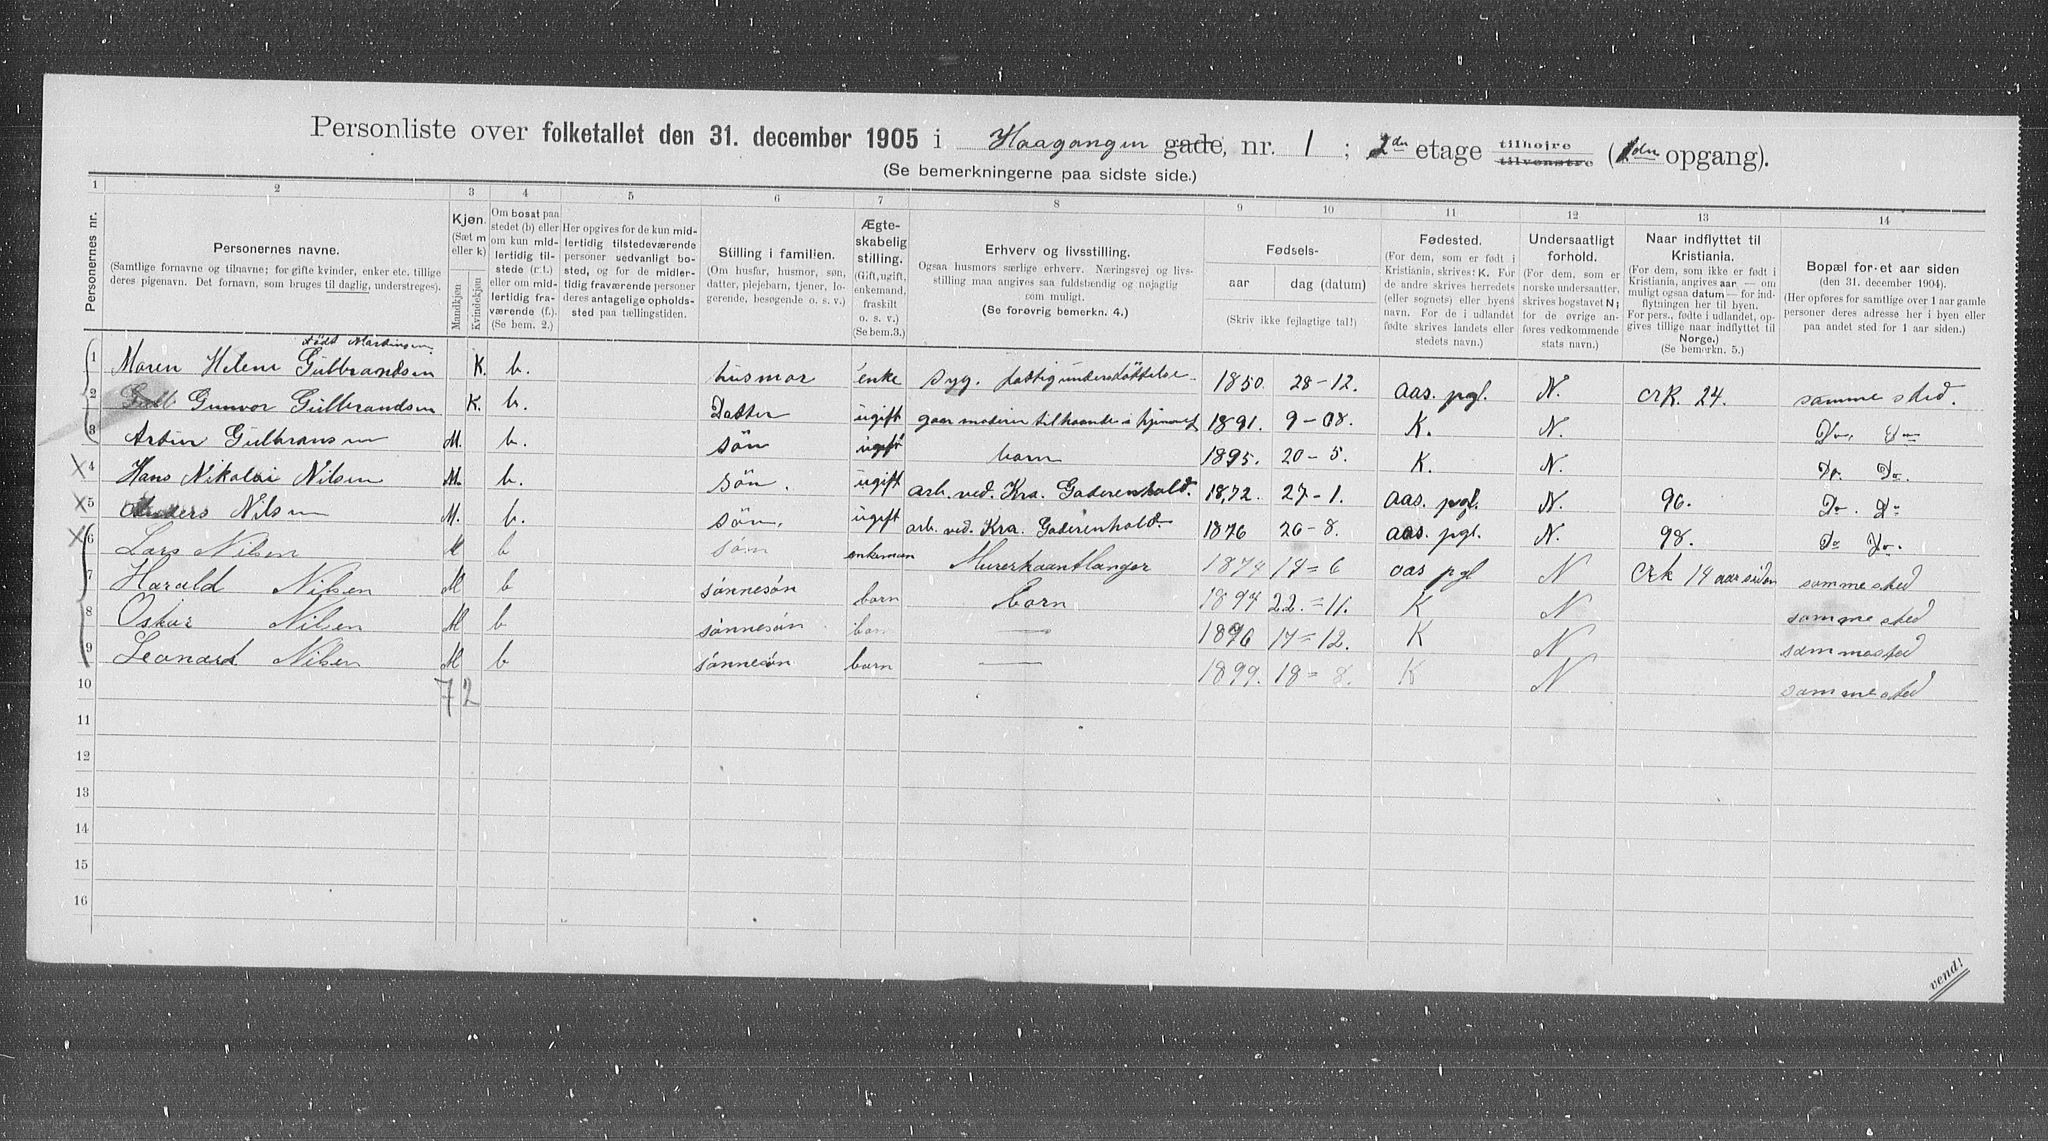 Personliste over folketallet den 31. december 1905 i Haagangen gade, nr. 1 ; 2den etage tilhøjre tilvenstre (1den opgang).
(Se bemerkningerne paa sidste side.)
1 2 3 4 5 6 7 8 9 10 11 12 13 14
Personernes nr.
Personernes navne.
(Samtlige fornavne og tilnavne; for gifte kvinder, enker etc. tillige
deres pigenavn. Det fornavn, som bruges til daglig, understreges).
Kjøn.
(Sæt m
eller k)
Mandkjøn
Kvindekjøn
Om bosat paa
stedet (b) eller
om kun mid-
lertidig til-
stede (mt.)
eller om mid-
lertidig fra-
værende (f.).
(Se bem. 2.)
Her opgives for de kun mid-
lertidig tilstedeværende
personer sedvanligt bo-
sted, og for de midler-
tidig fraværende personer
deres antagelige opholds-
sted paa tællingstiden.
Stilling i familien.
(Om husfar, husmor, søn,
datter, plejebarn, tjener, lo-
gerende, besøgende o. s. v.)
Ægte-
skabelig
stilling.
(Gift, ugift,
enkemand,
fraskilt
o. s. v.)
(Se bem. 3.)
Erhverv og livsstilling.
Ogsaa husmors særlige erhverv. Næringsvej og livs-
stilling maa angives saa fuldstændig og nøjagtig
som muligt.
(Se forøvrig bemerkn. 4.)
Fødsels-
aar dag (datum)
(Skriv ikke fejlagtige tal!)
Fødested.
(For dem, som er født i
Kristiania, skrives: K. For
de andre skrives herredets
(eller sognets) eller byens
navn. For de i udlandet
fødte skrives landets eller
stedets navn.)
Undersaatligt
forhold.
(For dem, som er
norske undersaatter,
skrives bogstavet N;
for de øvrige an-
føres vedkommende
stats navn.)
Naar indflyttet til
Kristiania.
(For dem, som ikke er født i
Kristiania, angives aar — om
muligt ogsaa datum — for ind-
flytningen her til byen.
For pers., fødte i udlandet, op-
gives tillige naar indflyttet til
Norge.)
(Se bemerkn. 5.)
Bopæl for et aar siden
(den 31. december 1904).
(Her opføres for samtlige over 1 aar gamle
personer deres adresse her i byen eller
paa andet sted for 1 aar siden.)
født Martinsen
1 Maren Helene Gulbrandsen K. b. husmor enke syg. fattigunderstøttelse 1850. 28-12. Aas. pgl. N. crk. 24. samme sted.
2 Gunvor Gulbrandsen K. b. Datter ugift gaar moderen tilhaande i hjemmet 1891. 9-08. K. N. Do. Do
3 Artur Gulbransen M. b. søn ugift barn 1895. 20-5. K. N. Do. Do.
4 Hans Nikolai Nilsen M. b. søn. ugift arb. ved. Kra. Gaderenhold. 1872. 27-1. Aas. pgl. N. 96. Do. Do
5 Anders Nilsen M. b. søn. ugift arb. ved. Kra. Gaderenhold. 1876 26-8. Aas. pgl. N. 98. Do Do.
6 Lars Nilsen M b søn enkeman Murerhaantlanger 1874 14=6 aas pgl N crk 14 aar siden samme sted
7 Harald Nilsen M b sønnesøn barn barn 1894 22.=11. K N samme sted
8 Oskar Nilsen M b sønnesøn barn — 1896 17=12. K N sammested
9 Leonard Nilsen M b sønnesøn barn — 1899. 18=8. K N samme sted
10 7 2
11
12
13
14
15
16
vend!